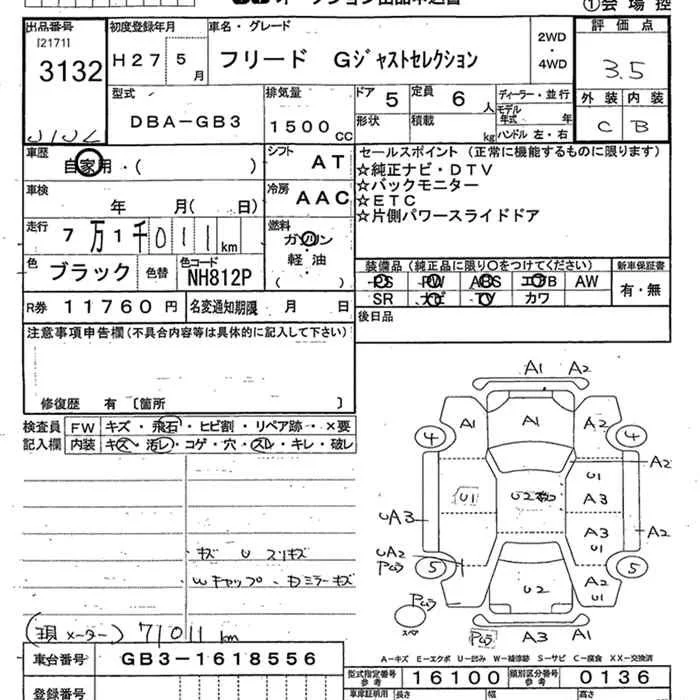 オークション出品申込書
①会場控
出品番号
[2171]
3132
初度登録年月
H27 5月
車名・グレード
フリード Gジャストセレクション
2WD
・
4WD
評価点
3.5
外装 内装
C B
型式
DBA-GB3
排気量
1500cc
ドア 5
定員 6人
形状
積載 kg
ディーラー・並行
モデル年式 年
ハンドル 左・右
車歴
自家用・( )
シフト
AT
車検
年 月( 日)
冷房
AAC
走行
7万1千011km
燃料
ガソリン
軽油
( )
色
ブラック
色替
色コード
NH812P
R券 11760円
名変通知期限 月 日
セールスポイント (正常に機能するものに限ります)
☆純正ナビ・DTV
☆バックモニター
☆ETC
☆片側パワースライドドア
装備品 (純正品に限り○をつけてください)
PS PW ABS エアB AW
SR ナビ TV カワ
新車保証書
有・無
後日品
注意事項申告欄 (不具合内容等は具体的に記入して下さい)
修復歴 有 〔箇所 〕
検査員記入欄
FW キズ・飛石・ヒビ割・リペア跡・×要
内装 キズ・汚レ・コゲ・穴・スレ・キレ・破レ
キズ U スリキズ
Wキャップ・Dミラーキズ
(現メーター) 71011km
A1 A2
A1 A1
4 4
A2
U1 U2 U1
A3
UA3 A3 A2
U1
UA2
5 5
A2
U1
U2
スペア
A3 A1
A-キズ E-エクボ U-凹み W-補修跡 S-サビ C-腐食 XX-交換済
車台番号 GB3-1618556
型式指定番号 参考 16100
類別区分番号 参考 0136
登録番号
車庫証明用 長さ 幅 高さ